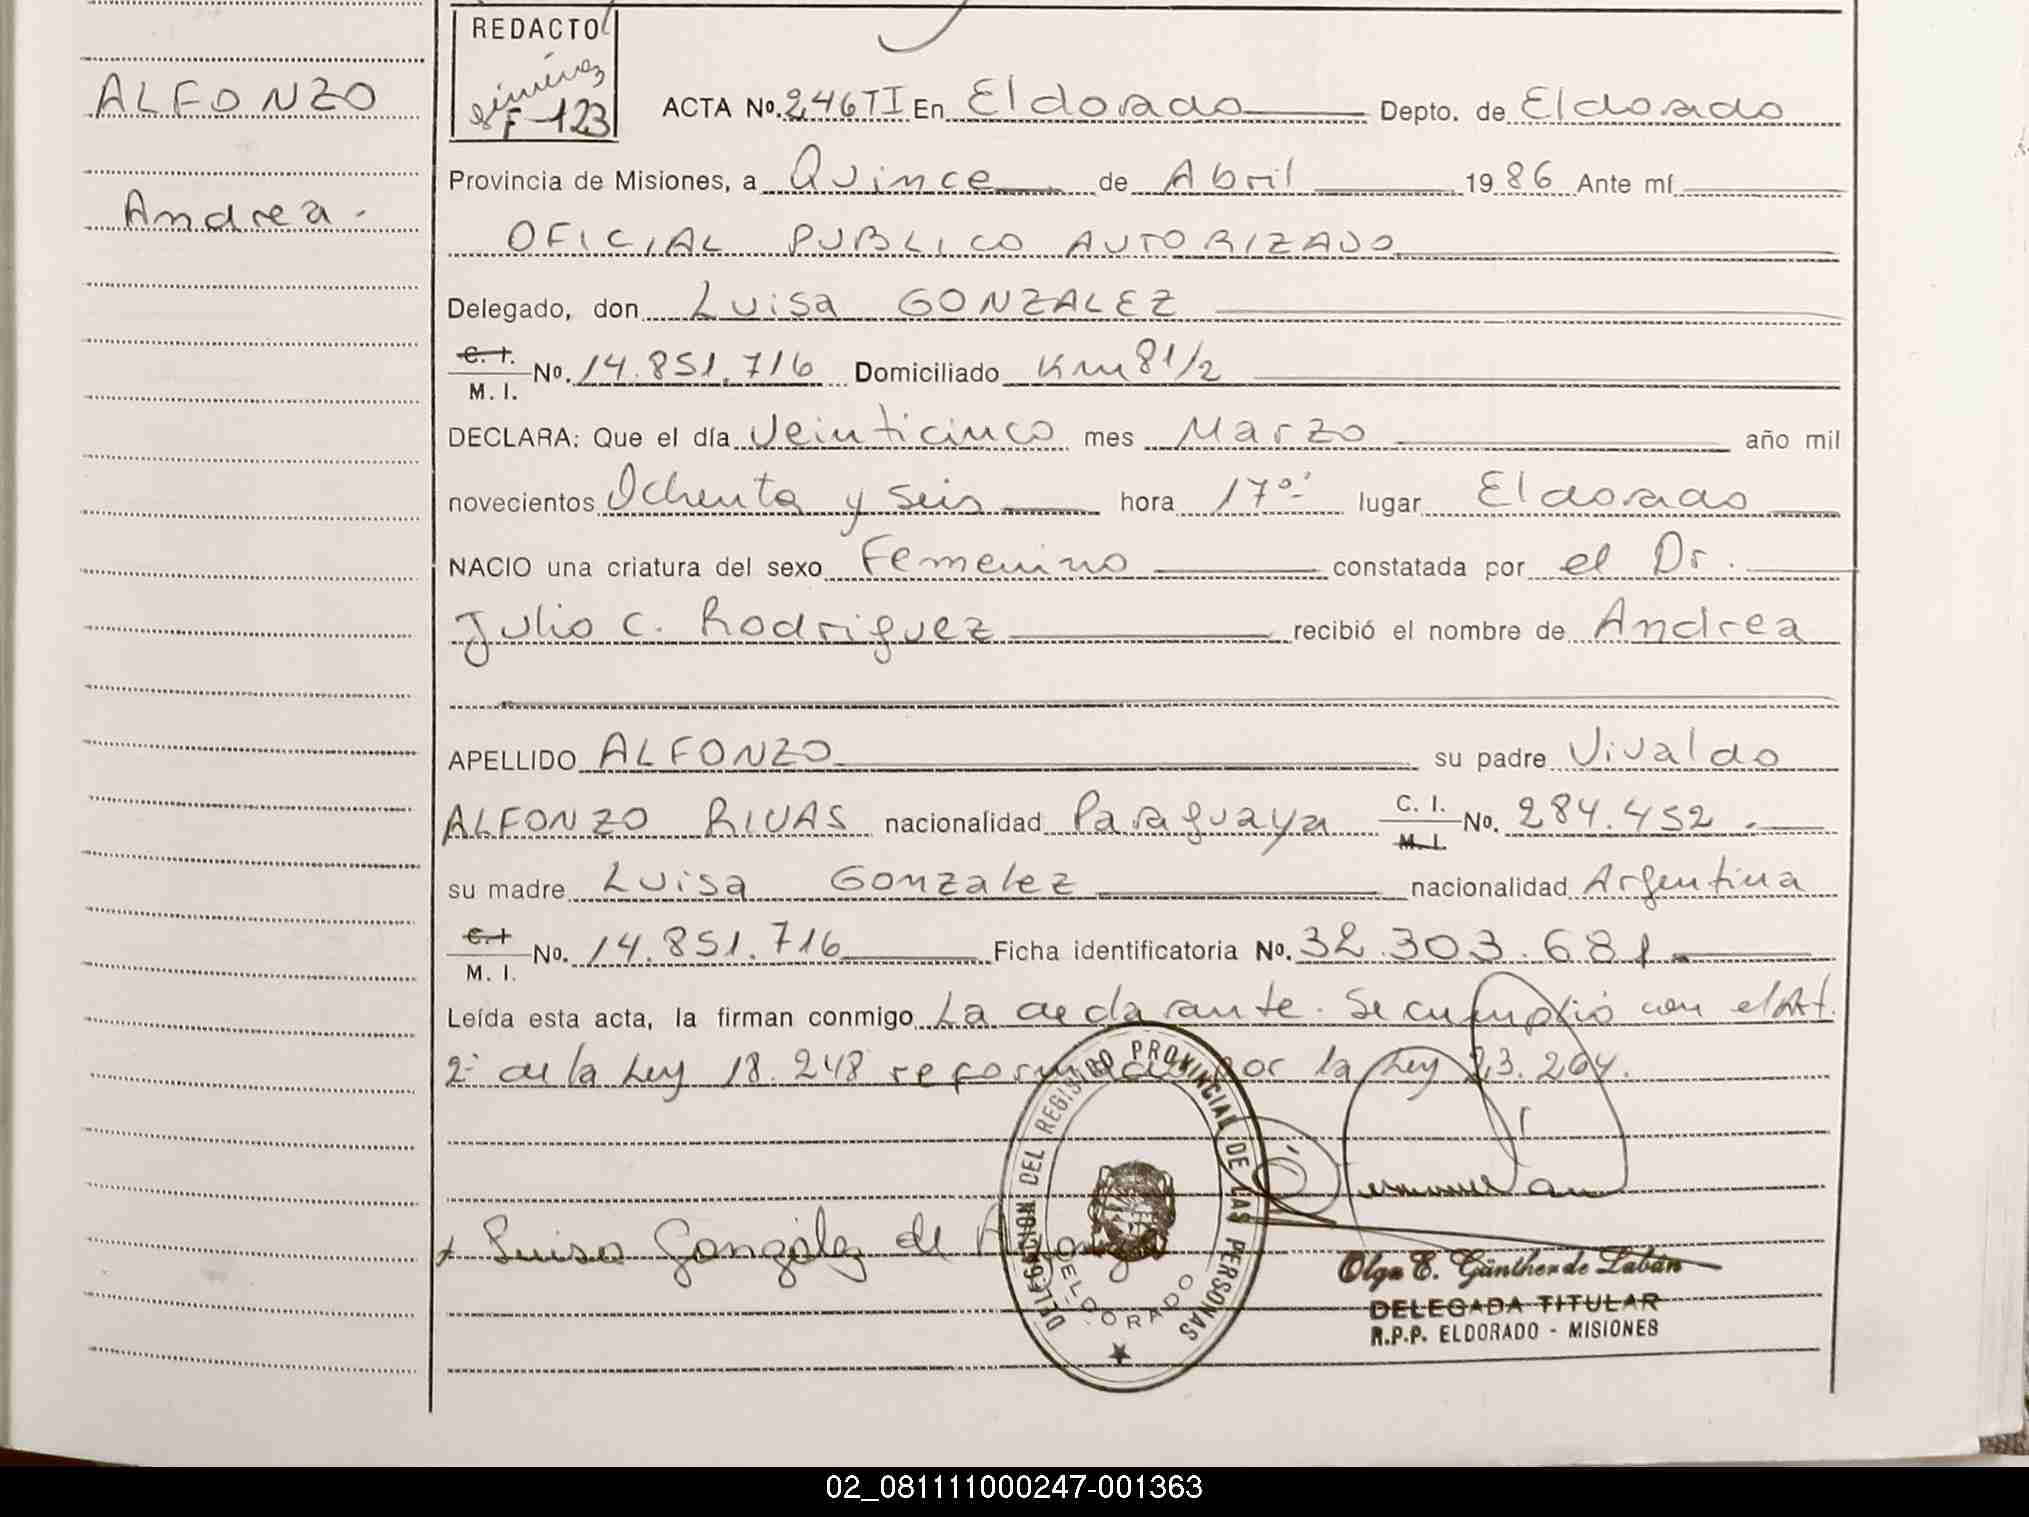 REDACTO
F-123
ALFONZO
Andrea.-
ACTA Nº. 246 TI En Eldorado Depto. de Eldorado
Provincia de Misiones, a Quince de Abril 1986 Ante mí
OFICIAL PUBLICO AUTORIZADO
Delegado, don Luisa GONZALEZ
C. I. M. I. Nº. 14.851.716 Domiciliado Km 8 1/2
DECLARA: Que el día Veinticinco mes Marzo año mil
novecientos Ochenta y seis hora 17ºº lugar Eldorado
NACIO una criatura del sexo Femenino constatada por el Dr.
Julio C. Rodriguez recibió el nombre de Andrea
APELLIDO ALFONZO su padre Vivaldo
ALFONZO RIVAS nacionalidad Paraguaya C. I. M. I. Nº. 284.452.
su madre Luisa Gonzalez nacionalidad Argentina
C. I M. I. Nº. 14.851.716 Ficha identificatoria Nº. 32.303.681
Leída esta acta, la firman conmigo La declarante. Se cumplió con el Art.
2º de la Ley 18.248 reformada por la Ley 23.264.
DELEGACION DEL REGISTRO PROVINCIAL DE LAS PERSONAS
ELDORADO
Luisa González de
Olga E. Günther de Labán
DELEGADA TITULAR
R.P.P. ELDORADO - MISIONES
02_081111000247-001363